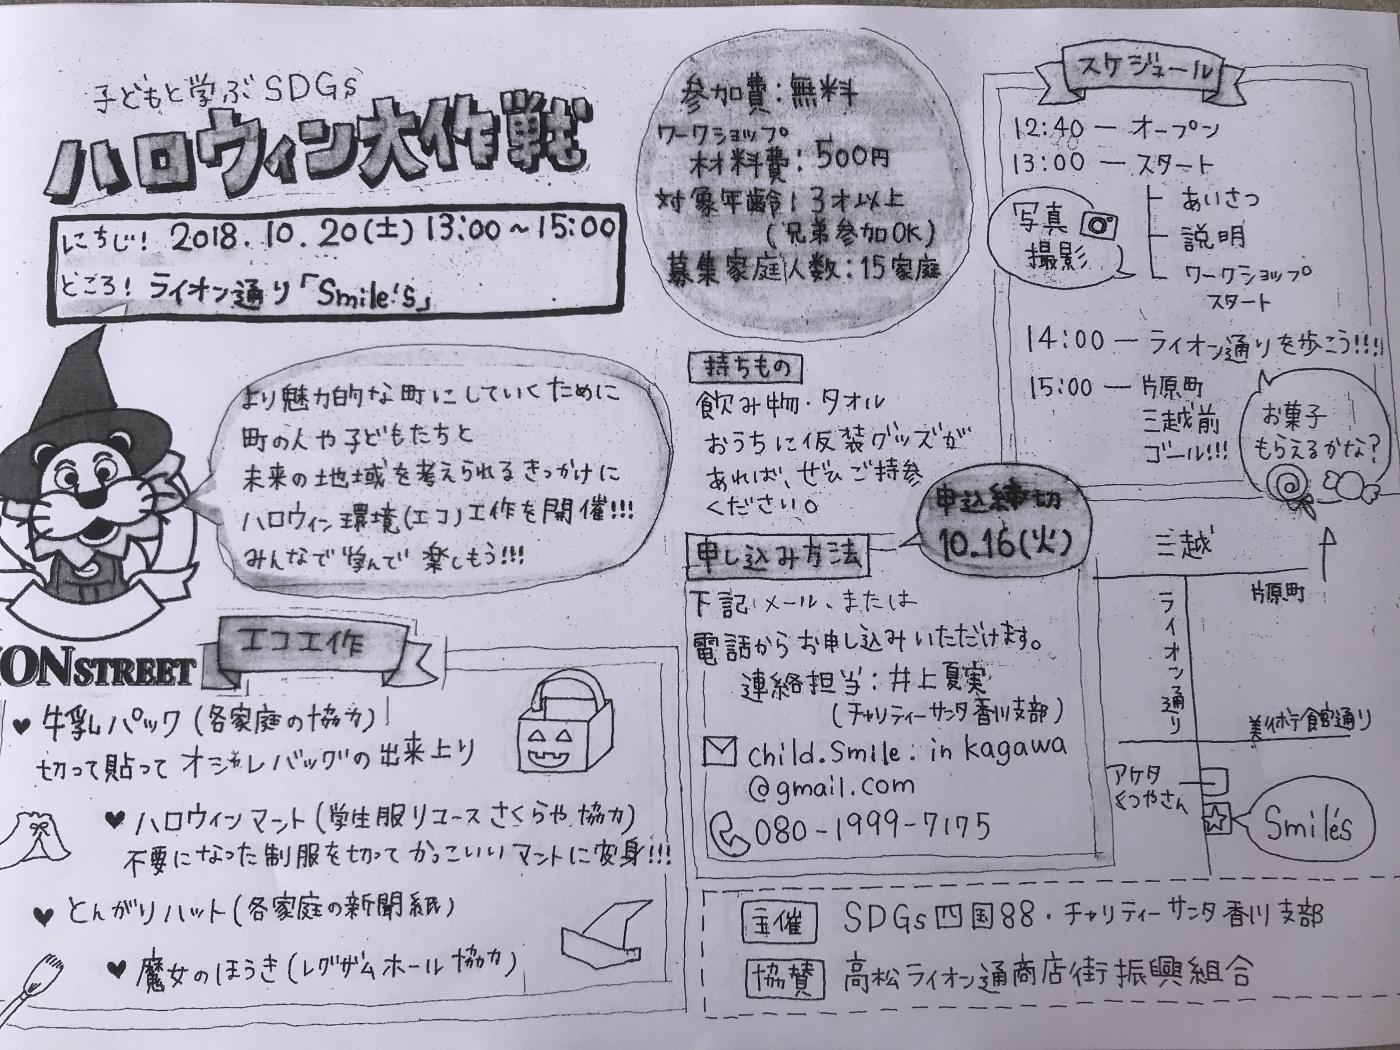 子どもと学ぶSDGs
ハロウィン大作戦
にちじ! 2018.10.20(土)13:00~15:00
ところ! ライオン通り「Smile's」
より魅力的な町にしていくために
町の人や子どもたちと
未来の地域を考えられるきっかけに
ハロウィン環境(エコ)工作を開催!!!
みんなで学んで楽しもう!!!
IONSTREET
エコ工作
♥ 牛乳パック(各家庭の協力)
切って貼ってオシャレバッグの出来上り
♥ ハロウィンマント(学生服リユースさくらや協力)
不要になった制服を切ってかっこいいマントに変身!!!
♥ とんがりハット(各家庭の新聞紙)
♥ 魔女のほうき(レグザムホール協力)
参加費:無料
ワークショップ
材料費:500円
対象年齢:3才以上
(兄弟参加OK)
募集家庭人数:15家庭
持ちもの
飲み物・タオル
おうちに仮装グッズが
あれば、ぜひご持参
ください。
申込締切
10.16(火)
申し込み方法
下記メール、または
電話からお申し込みいただけます。
連絡担当:井上夏実
(チャリティーサンタ香川支部)
child.smile.in kagawa
@gmail.com
080-1999-7175
スケジュール
12:40 ー オープン
13:00 ー スタート
あいさつ
説明
ワークショップ
スタート
写真
撮影
14:00 ー ライオン通りを歩こう!!!!
15:00 ー 片原町
三越前
ゴール!!!
お菓子
もらえるかな?
三越
片原町
ライオン通り
美術館通り
アケタ
くつやさん
Smile's
主催 SDGs四国88・チャリティーサンタ香川支部
協賛 高松ライオン通商店街振興組合